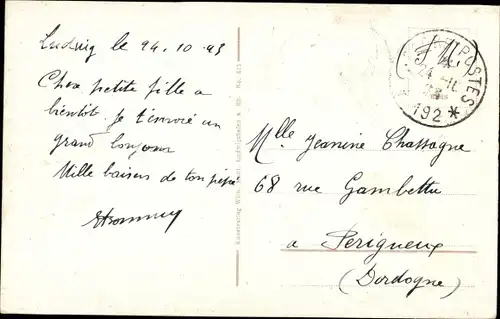 Ludwig le 24.10.23
Chere petite fille a
bientot. Je t'envoie un
grand bonjour
Mille baisers de ton pépé
F.M.
POSTES
192 *
Mlle Jeanine Chassagne
68 rue Gambetta
a Perigueux
(Dordogne)